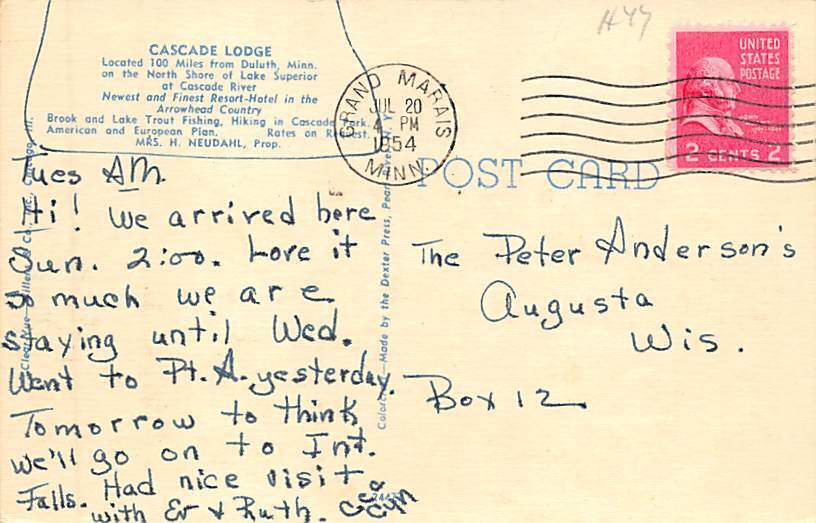 H44
CASCADE LODGE
Located 100 Miles from Duluth, Minn.
on the North Shore of Lake Superior
at Cascade River
Newest and Finest Resort-Hotel in the
Arrowhead Country
Brook and Lake Trout Fishing, Hiking in Cascade Park.
American and European Plan. Rates on Request.
MRS. H. NEUDAHL, Prop.
GRAND MARAIS
JUL 20
4 PM
1954
MINN.
UNITED
STATES
POSTAGE
2 CENTS 2
POST CARD
Tues AM.
Hi! We arrived here
Sun. 2:00. Love it
so much we are
staying until Wed.
Went to Pt. A. yesterday.
Tomorrow to think
we'll go on to Int.
Falls. Had nice visit
with Er & Ruth.
The Peter Anderson's
Augusta
Wis.
Box 12
Made by the Dexter Press, Pearl N. Y.